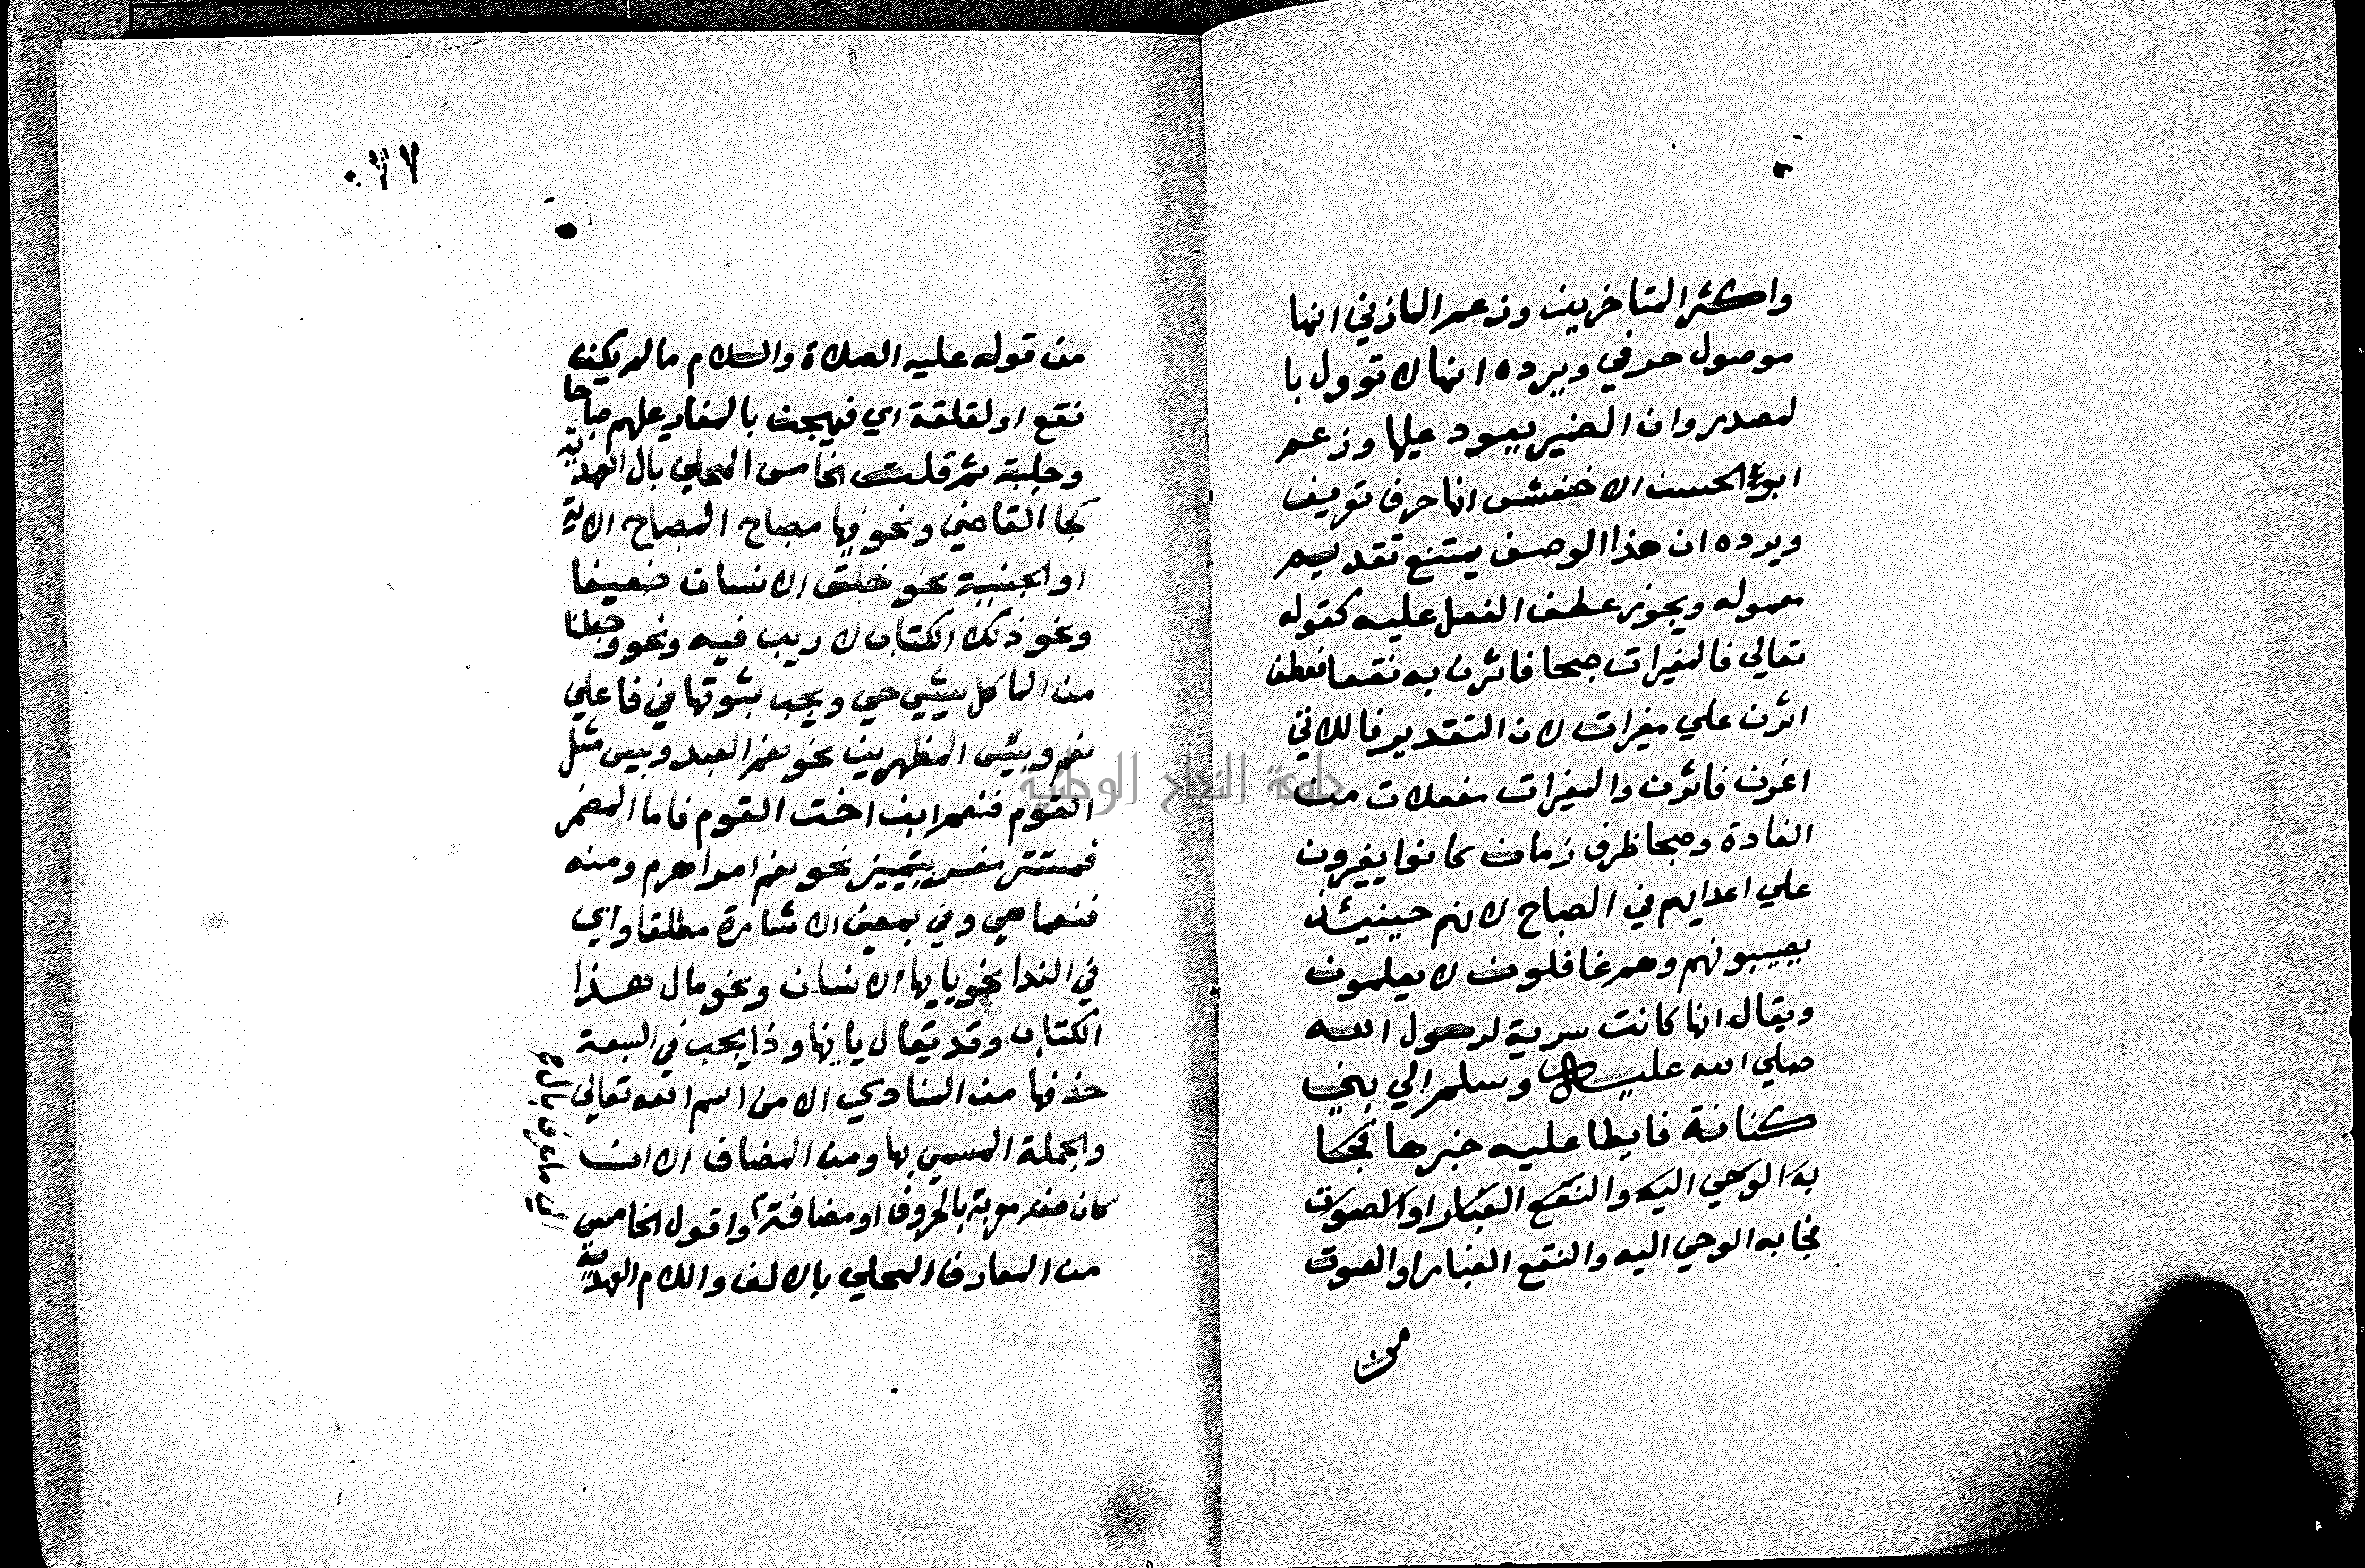 واكثر المتاخرين وزعم المازني انها
موصول حرفي ويرده انها لا توول با
لمصدر وان الضمير يعود عليها وزعم
ابو الحسن الاخفش انها حرف تعريف
ويرده ان هذا الوصف يمتنع تقديم
معموله ويجوز عطف الفعل عليه كقوله
تعالي فالمغيرات صبحا فاثرن به نقعا فعطف
اثرن علي مغيرات لان التقدير فاللاتي
اغرن فاثرن والمغيرات مفعلات من
الغارة وصبحا ظرف زمان كانوا يغيرون
علي اعدايهم في الصباح لانهم حينيئذ
يصيبونهم وهم غافلون لا يعلمون
ويقال انها كانت سرية لرسول الله
صلي الله عليه وسلم الي بني
كنانة فابطا عليه خبرها فجا
به الوحي اليه والنقع الغبار او الصوت
فجا به الوحي اليه والنقع الغبار او الصوت
من
٠٣٧
من قوله عليه الصلاة والسلام ما لم يكن
نقع او لقلقة اي فهيجن بالمغار عليهم صباحا
وجلبة ثم قلت الخامس المحلي بال العهدية
كجا القاضي ونحو فيها مصباح المصباح الاية
او الجنسية نحو خلق الانسان ضعيفا
ونحو ذلك الكتاب لا ريب فيه ونحو وجعلنا
من الما كل شيي حي ويجب ثبوتها في فاعلي
نعم وبئس المظهرين نحو نعم العبد وبيس مثل
القوم فنعم ابن اخت القوم فاما المضمر
فمستتر مفسر بتمييز نحو نعم امرا هرم ومنه
فنعما هي وفي نعتي الاشارة مطلقا واي
في الندا نحو يايها الانسان ونحو مال هذا
الكتاب وقد يقال يا ايهذا ويجب في السعة
حذفها من المنادي الا من اسم الله تعالي
والجملة المسمي بها ومن المضاف الا ان
كان صفة معربة بالحروف او مضافة واقول الخامس
من المعارف المحلي بالالف واللام العهدية
الي ما عرف بال
جامعة النجاح الوطنية